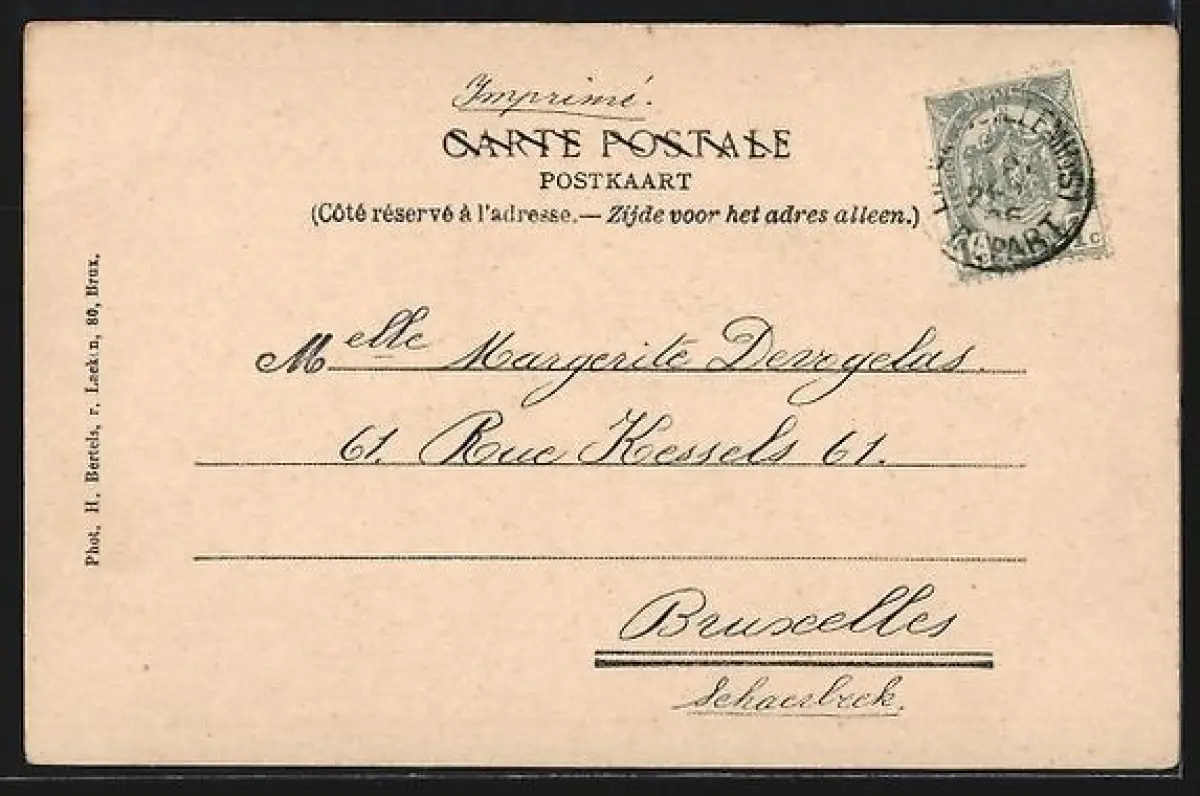 Imprimé.
CARTE POSTALE
POSTKAART
(Côté réservé à l'adresse.— Zijde voor het adres alleen.)
DEPART
Melle Margerite Devogelas.
61. Rue Kessels 61.
Bruxelles
Schaerbeek.
Phot. H. Bertels, r. Laeken, 80, Brux.